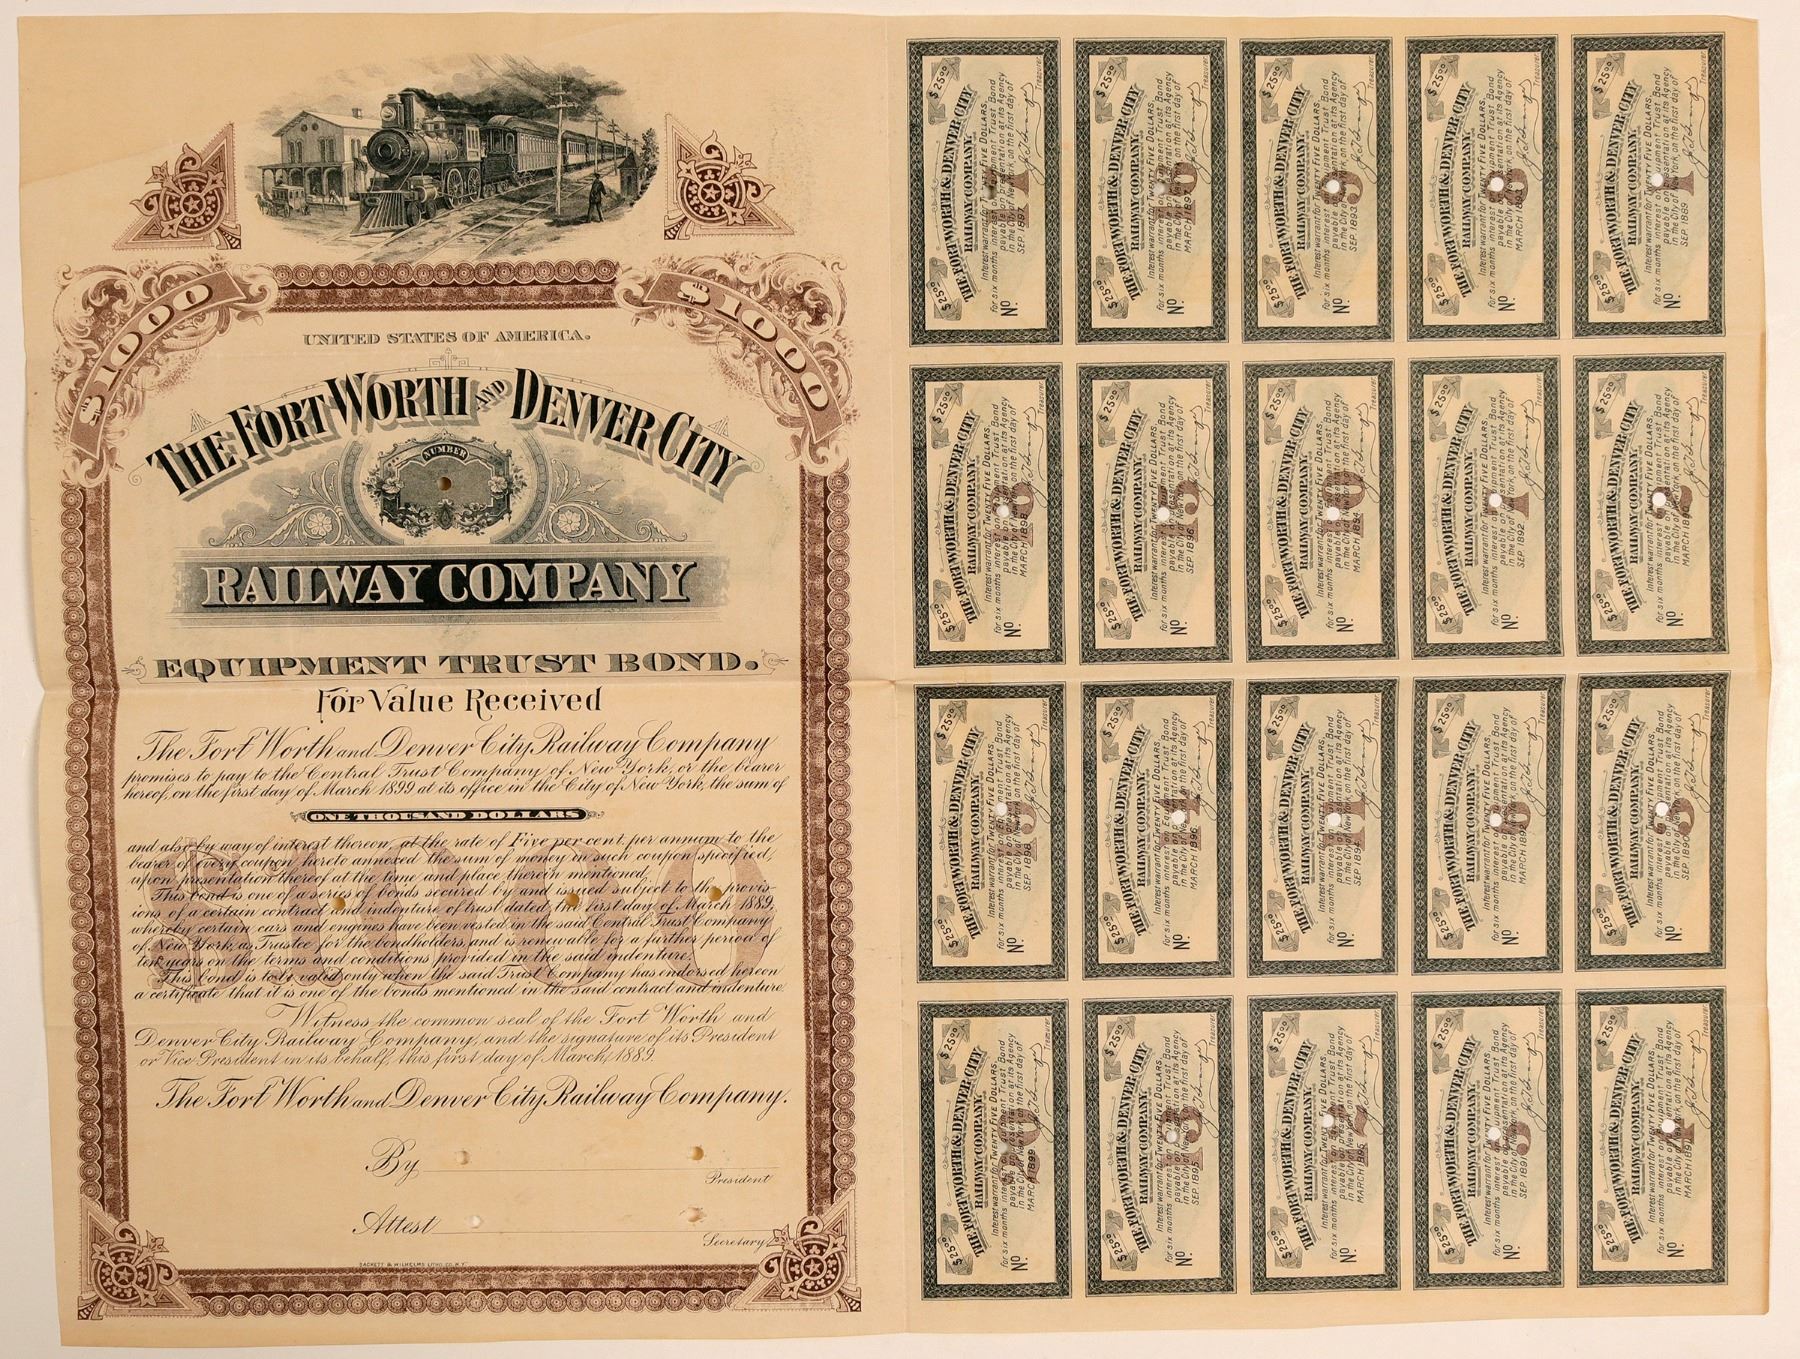 $1000
$1000
UNITED STATES OF AMERICA.
THE FORT WORTH AND DENVER CITY
NUMBER
RAILWAY COMPANY
EQUIPMENT TRUST BOND.
For Value Received
The Fort Worth and Denver City Railway Company
promises to pay to the Central Trust Company of New York, or the bearer
hereof, on the first day of March 1899 at its office in the City of New York, the sum of
ONE THOUSAND DOLLARS
and also by way of interest thereon, at the rate of Five per cent. per annum to the
bearer of every coupon hereto annexed the sum of money in such coupon specified,
upon presentation thereof at the time and place therein mentioned.
This bond is one of a series of bonds secured by and issued subject to the provis-
ions of a certain contract and indenture of trust dated the first day of March 1889,
whereby certain cars and engines have been vested in the said Central Trust Company
of New York, as Trustee for the bondholders, and is renewable for a further period of
ten years on the terms and conditions provided in the said indenture.
This bond is to be valid only when the said Trust Company has endorsed hereon
a certificate that it is one of the bonds mentioned in the said contract and indenture
$1000
Witness the common seal of the Fort Worth and
Denver City Railway Company, and the signature of its President
or Vice President in its behalf, this first day of March, 1889.
The Fort Worth and Denver City Railway Company.
By
President
Attest
Secretary
SACKETT & WILHELMS LITHO. CO. N.Y.
$25.00 $25.00
THE FORT WORTH & DENVER CITY
RAILWAY COMPANY.
Interest warrant for TWENTY FIVE DOLLARS,
for six months interest on Equipment Trust Bond
payable on presentation at its Agency
in the City of New York on the first day of
SEP. 1897
No. Treasurer
$25.00 $25.00
THE FORT WORTH & DENVER CITY
RAILWAY COMPANY.
Interest warrant for TWENTY FIVE DOLLARS,
for six months interest on Equipment Trust Bond
payable on presentation at its Agency
in the City of New York on the first day of
MARCH 1897
No. Treasurer
$25.00 $25.00
THE FORT WORTH & DENVER CITY
RAILWAY COMPANY.
Interest warrant for TWENTY FIVE DOLLARS,
for six months interest on Equipment Trust Bond
payable on presentation at its Agency
in the City of New York on the first day of
SEP. 1893
9
No. Treasurer
$25.00 $25.00
THE FORT WORTH & DENVER CITY
RAILWAY COMPANY.
Interest warrant for TWENTY FIVE DOLLARS,
for six months interest on Equipment Trust Bond
payable on presentation at its Agency
in the City of New York on the first day of
MARCH 1893
8
No. Treasurer
$25.00 $25.00
THE FORT WORTH & DENVER CITY
RAILWAY COMPANY.
Interest warrant for TWENTY FIVE DOLLARS,
for six months interest on Equipment Trust Bond
payable on presentation at its Agency
in the City of New York on the first day of
SEP. 1889
1
No. Treasurer
$25.00 $25.00
THE FORT WORTH & DENVER CITY
RAILWAY COMPANY.
Interest warrant for TWENTY FIVE DOLLARS,
for six months interest on Equipment Trust Bond
payable on presentation at its Agency
in the City of New York on the first day of
MARCH 1898
No. Treasurer
$25.00 $25.00
THE FORT WORTH & DENVER CITY
RAILWAY COMPANY.
Interest warrant for TWENTY FIVE DOLLARS,
for six months interest on Equipment Trust Bond
payable on presentation at its Agency
in the City of New York on the first day of
SEP. 1896
No. Treasurer
$25.00 $25.00
THE FORT WORTH & DENVER CITY
RAILWAY COMPANY.
Interest warrant for TWENTY FIVE DOLLARS,
for six months interest on Equipment Trust Bond
payable on presentation at its Agency
in the City of New York on the first day of
MARCH 1894
10
No. Treasurer
$25.00 $25.00
THE FORT WORTH & DENVER CITY
RAILWAY COMPANY.
Interest warrant for TWENTY FIVE DOLLARS,
for six months interest on Equipment Trust Bond
payable on presentation at its Agency
in the City of New York on the first day of
SEP. 1892
7
No. Treasurer
$25.00 $25.00
THE FORT WORTH & DENVER CITY
RAILWAY COMPANY.
Interest warrant for TWENTY FIVE DOLLARS,
for six months interest on Equipment Trust Bond
payable on presentation at its Agency
in the City of New York on the first day of
MARCH 1890
2
No. Treasurer
$25.00 $25.00
THE FORT WORTH & DENVER CITY
RAILWAY COMPANY.
Interest warrant for TWENTY FIVE DOLLARS,
for six months interest on Equipment Trust Bond
payable on presentation at its Agency
in the City of New York on the first day of
SEP. 1898
No. Treasurer
$25.00 $25.00
THE FORT WORTH & DENVER CITY
RAILWAY COMPANY.
Interest warrant for TWENTY FIVE DOLLARS,
for six months interest on Equipment Trust Bond
payable on presentation at its Agency
in the City of New York on the first day of
MARCH 1896
14
No. Treasurer
$25.00 $25.00
THE FORT WORTH & DENVER CITY
RAILWAY COMPANY.
Interest warrant for TWENTY FIVE DOLLARS,
for six months interest on Equipment Trust Bond
payable on presentation at its Agency
in the City of New York on the first day of
SEP. 1894
11
No. Treasurer
$25.00 $25.00
THE FORT WORTH & DENVER CITY
RAILWAY COMPANY.
Interest warrant for TWENTY FIVE DOLLARS,
for six months interest on Equipment Trust Bond
payable on presentation at its Agency
in the City of New York on the first day of
MARCH 1892
6
No. Treasurer
$25.00 $25.00
THE FORT WORTH & DENVER CITY
RAILWAY COMPANY.
Interest warrant for TWENTY FIVE DOLLARS,
for six months interest on Equipment Trust Bond
payable on presentation at its Agency
in the City of New York on the first day of
SEP. 1890
3
No. Treasurer
$25.00 $25.00
THE FORT WORTH & DENVER CITY
RAILWAY COMPANY.
Interest warrant for TWENTY FIVE DOLLARS,
for six months interest on Equipment Trust Bond
payable on presentation at its Agency
in the City of New York on the first day of
MARCH 1899
20
No. Treasurer
$25.00 $25.00
THE FORT WORTH & DENVER CITY
RAILWAY COMPANY.
Interest warrant for TWENTY FIVE DOLLARS,
for six months interest on Equipment Trust Bond
payable on presentation at its Agency
in the City of New York on the first day of
SEP. 1895
13
No. Treasurer
$25.00 $25.00
THE FORT WORTH & DENVER CITY
RAILWAY COMPANY.
Interest warrant for TWENTY FIVE DOLLARS,
for six months interest on Equipment Trust Bond
payable on presentation at its Agency
in the City of New York on the first day of
MARCH 1895
12
No. Treasurer
$25.00 $25.00
THE FORT WORTH & DENVER CITY
RAILWAY COMPANY.
Interest warrant for TWENTY FIVE DOLLARS,
for six months interest on Equipment Trust Bond
payable on presentation at its Agency
in the City of New York on the first day of
SEP. 1891
5
No. Treasurer
$25.00 $25.00
THE FORT WORTH & DENVER CITY
RAILWAY COMPANY.
Interest warrant for TWENTY FIVE DOLLARS,
for six months interest on Equipment Trust Bond
payable on presentation at its Agency
in the City of New York on the first day of
MARCH 1891
4
No. Treasurer